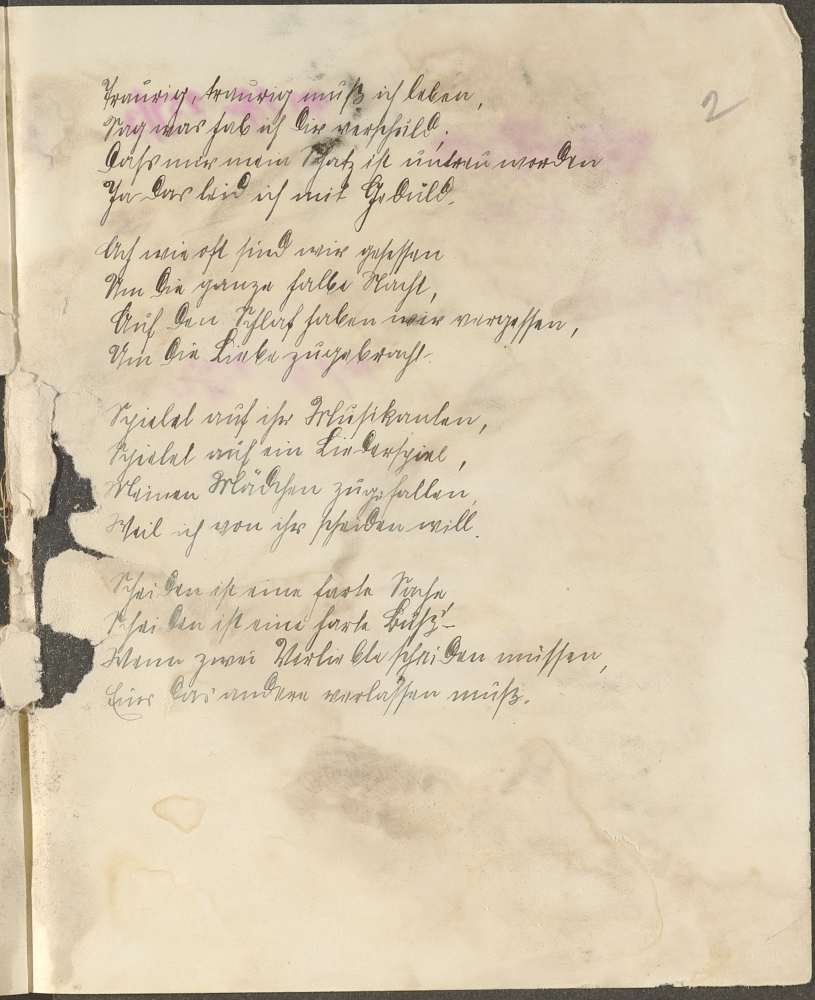 2
Traurig, traurig muß ich leben,
Sag was hab ich Dir verschuld,
Daß mir mein Schatz ist untreu worden
Ja das leid ich mit Geduld.
Ach wie oft sind wir gesessen
Um die ganze halbe Nacht,
Auf den Schlaf haben wir vergessen,
Um die Liebe zugebracht.
Spielet auf ihr Musikanten,
Spielet auf ein Liederspiel,
Meinen Mädchen zugefallen,
Weil ich von ihr scheiden will.
Scheiden ist eine harte Sache
Scheiden ist eine harte Buß'
Wenn zwei Verliebte scheiden müssen,
Eins das andere verlassen muß.